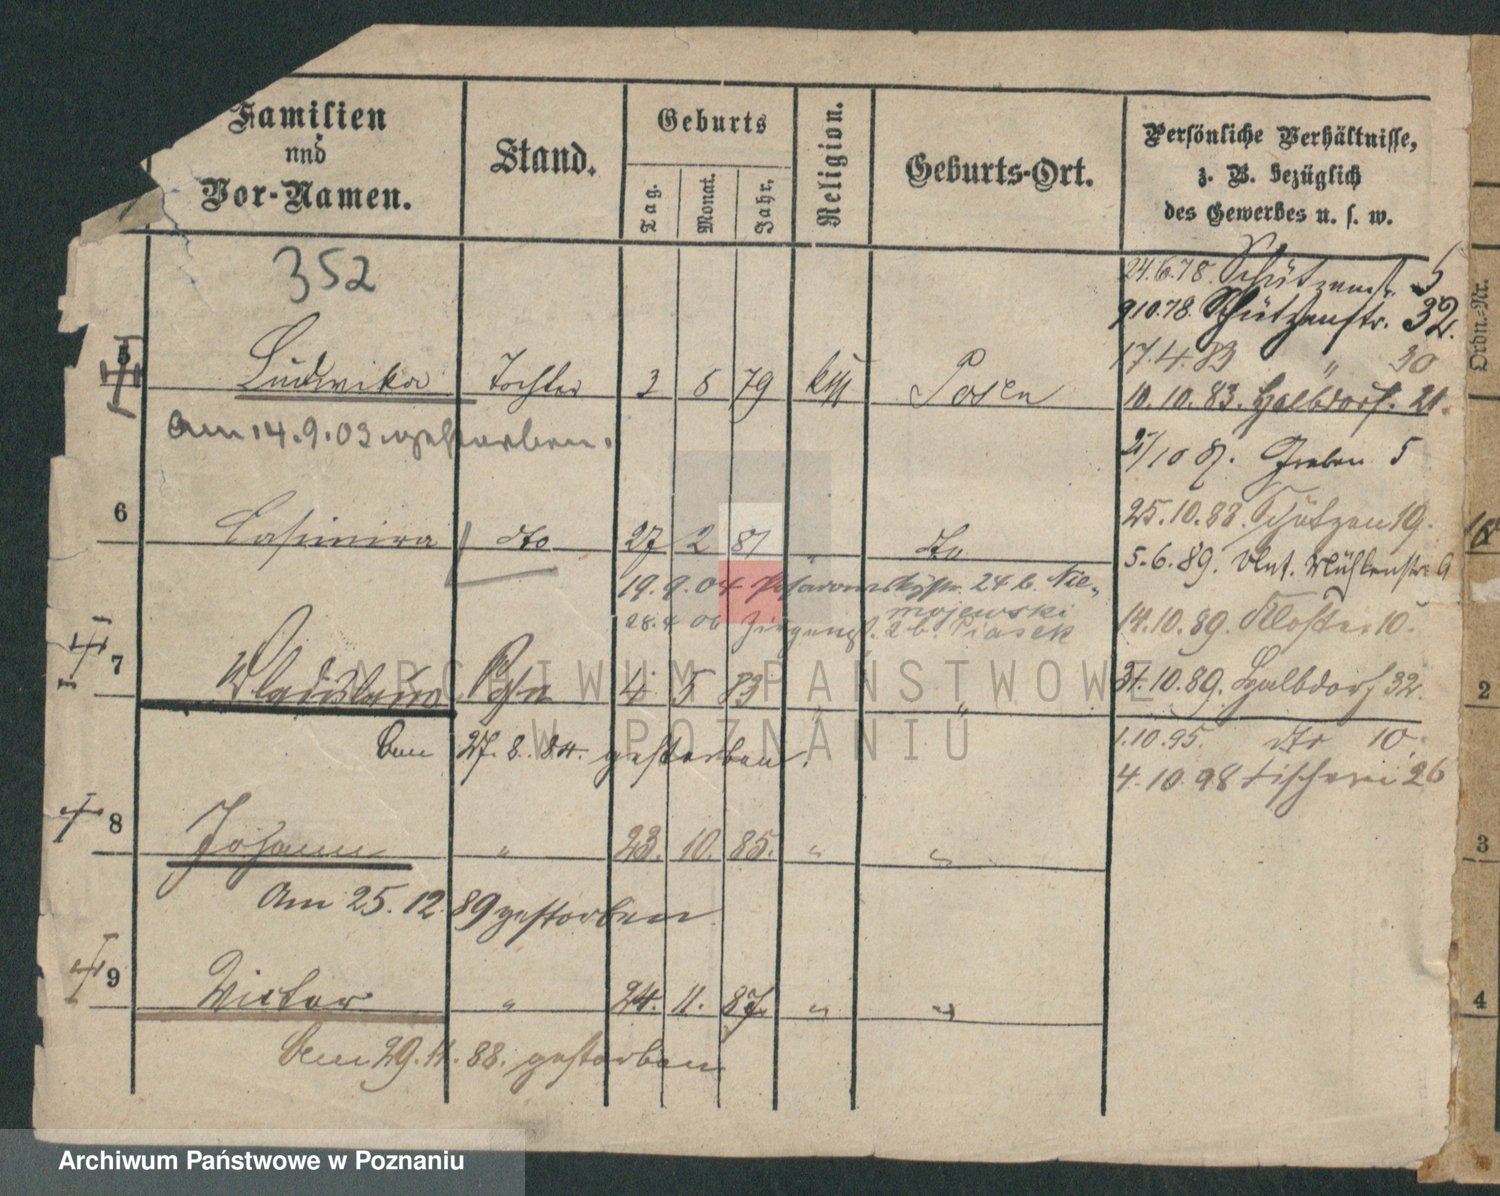 Familien
und
Vor-Namen.
Stand.
Geburts
Tag.
Monat.
Jahr.
Religion.
Geburts-Ort.
Persönliche Verhältnisse,
z. B. bezüglich
des Gewerbes u. s. w.
352
24.6.78. Schützenstr. 5
9.10.78. Schützenstr. 32.
17.4.83 " 30
5 Ludwika Tochter 3 8 79 kth Posen
10.10.83. Halbdorf. 21.
Am 14.9.03 gestorben.
10 87. Graben 5
25.10.88. Schützen 19.
6 Casimira dto 27 2 81 " dto
5.6.89. Mühlenstr. 9
19.9.04 24 b. Nie-
mojewski
28.4.06 2 b. Piasek
14.10.89. Kloster 10.
7 Wladislaus Sohn 4 5 83 " "
31.10.89. Halbdorf 32.
Am 27.8.84. gestorben.
1.10.95. dto 10.
4.10.98 Fischerei 26
8 Johann " 23. 10. 85. " "
Am 25.12.89 gestorben
9 Victor " 24. 11. 87. " "
Am 29.11.88. gestorben
Ordn.-Nr.
2
3
4
ARCHIWUM PAŃSTWOWE
W POZNANIU
Archiwum Państwowe w Poznaniu